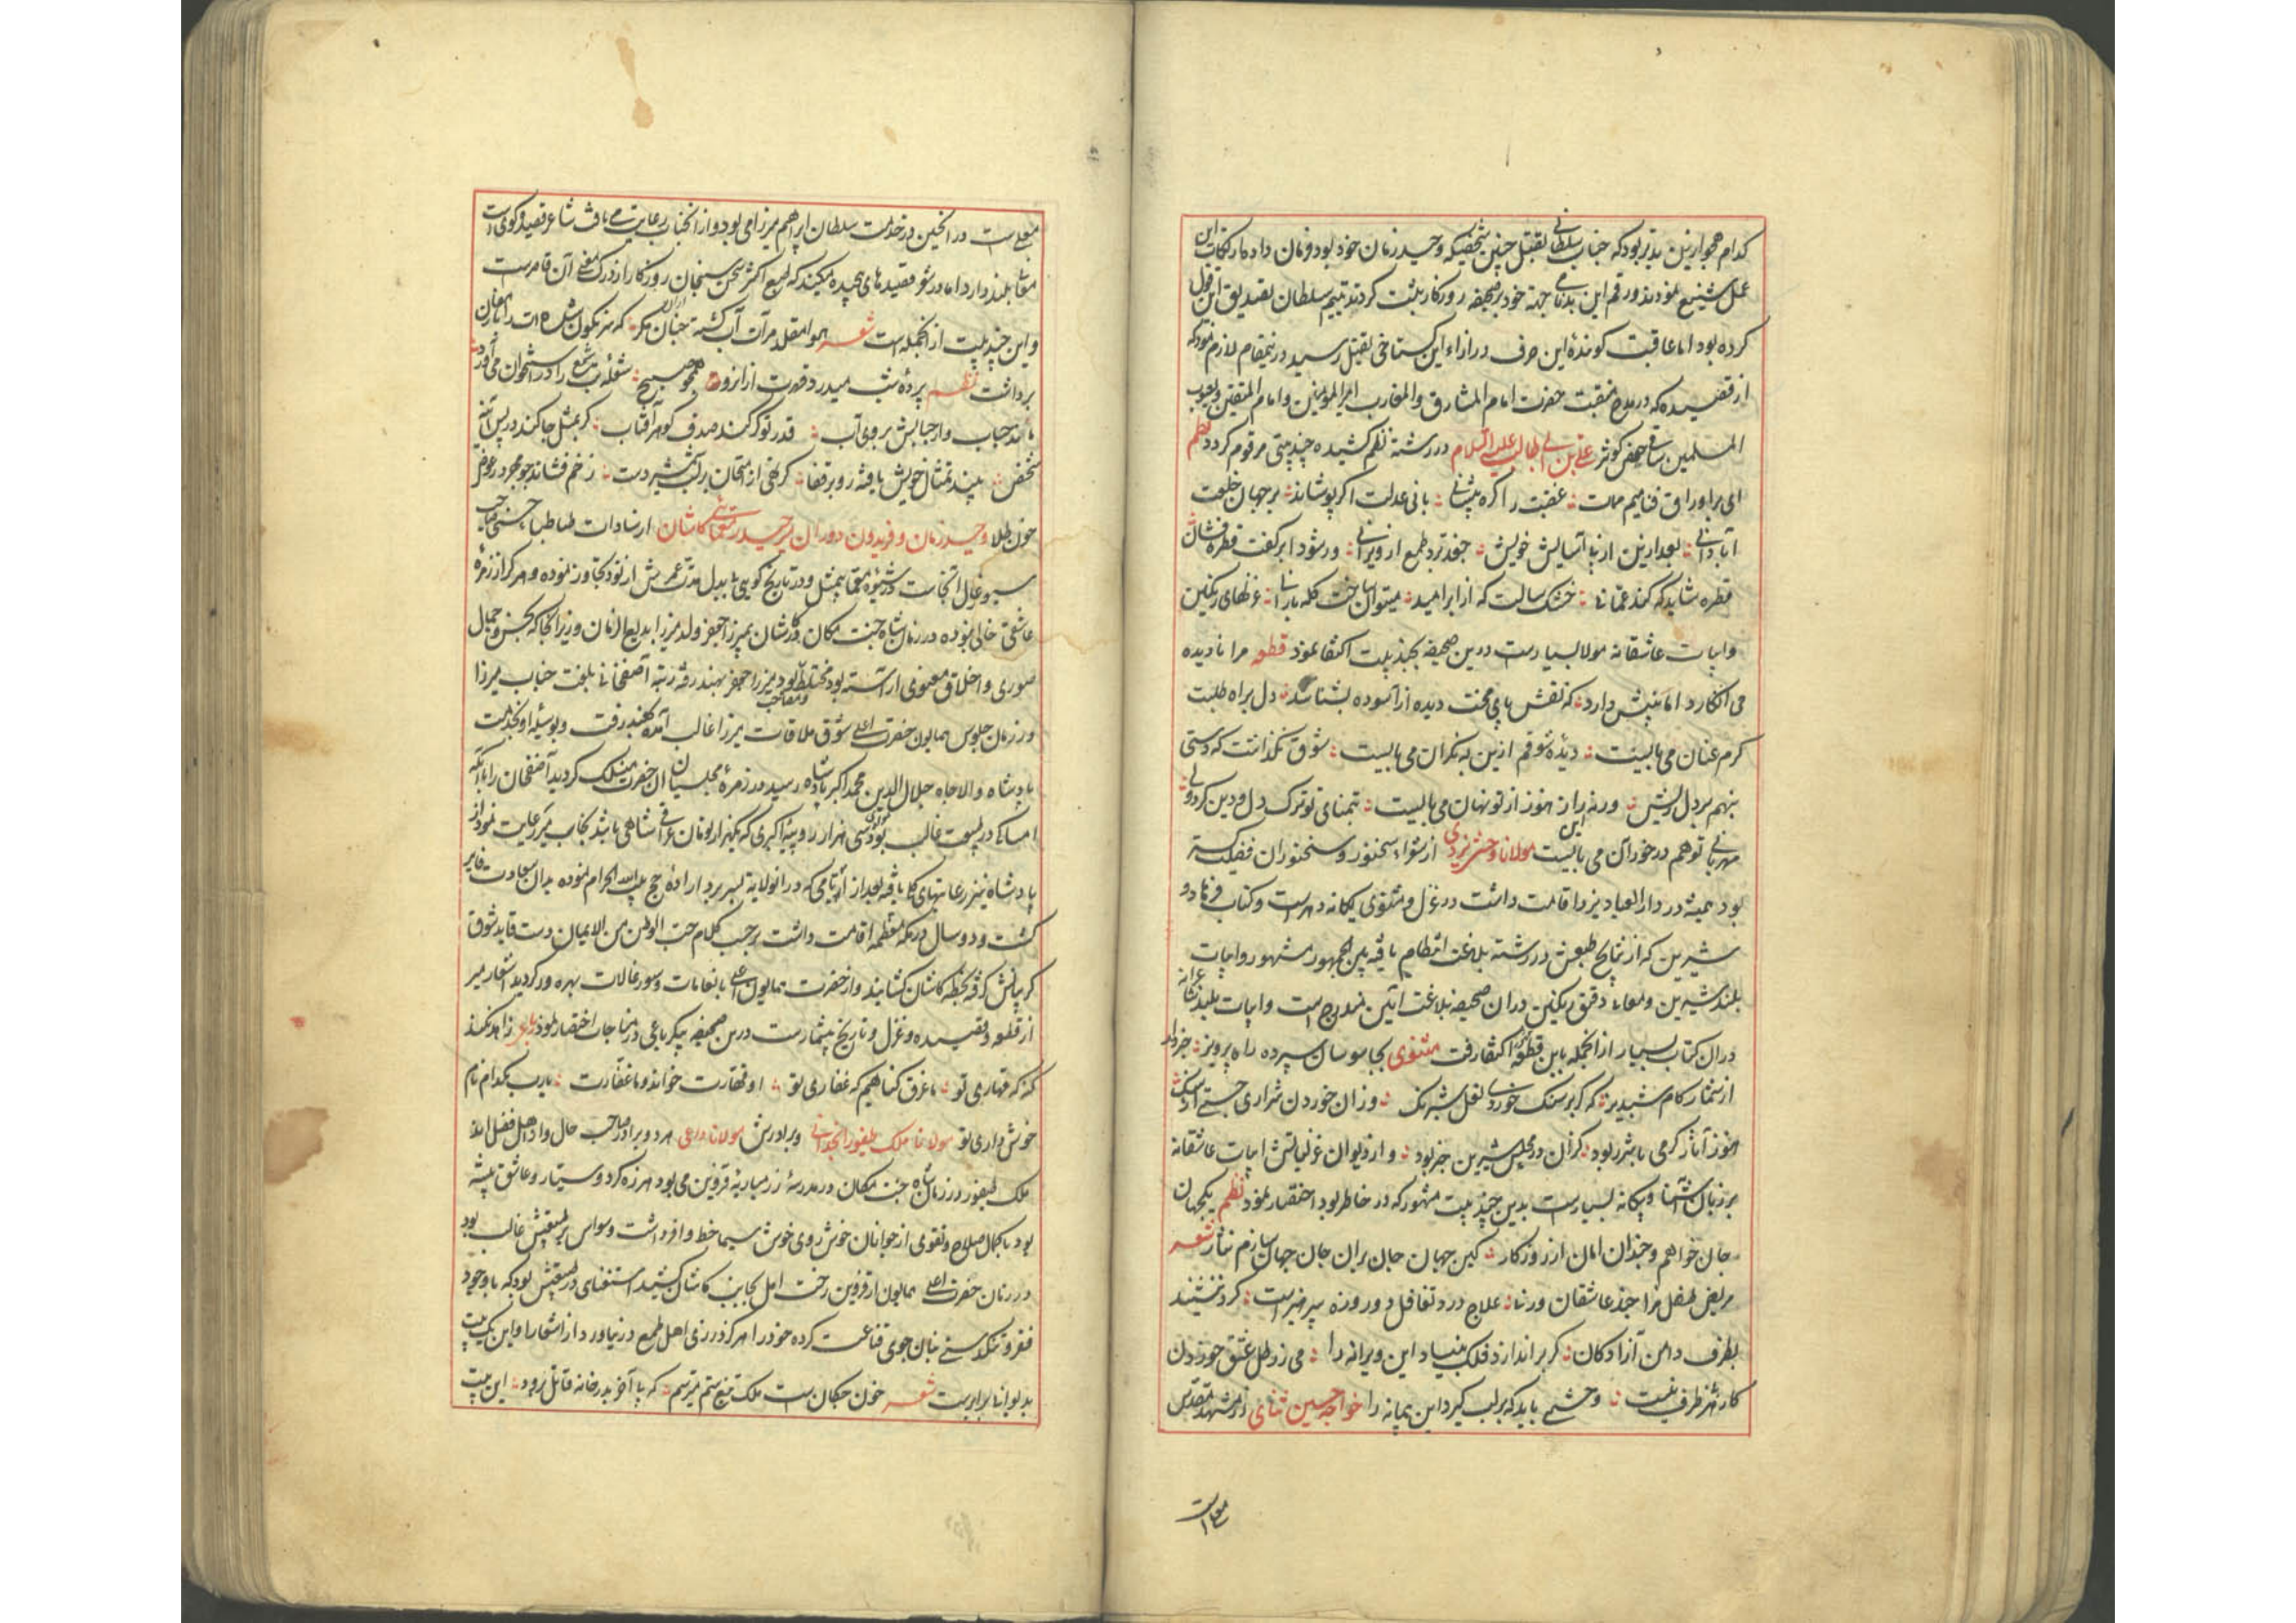 کدام هجو ازین بدتر بود که جناب سلطانی بقتل چنین شخصیکه وحید زمان خود بود فرمان داد و ارتکاب این
عمل شنیع نمودند و رقم این بدنامی جهة خود بر صحیفه روزکار ثبت کردند سلطان تصدیق این قول
کرده بود اما عاقبت کوینده این حرف در ازاء این کستاخی بقتل رسید درینمقام لازم نمود که
از قصیده که در مدح و منقبت حضرت امام المشارق والمغارب امیر المؤمنین و امام المتقین و یعسوب
المسلمین ساقی حوض کوثر علی بن ابی طالب علیه السلام در رشته نظم کشیده چند بیتی مرقوم کردد نظم
ای بر اوراق فنا میم ممات عفتت را کره پیشانی بانی عدلت اکر پوشاند بر جهان خلعت
آبادانی بعد ازین از پی آسایش خویش جغد برد طمع از ویرانی ور شود ابر کفت قطره فشان
قطره شاید که کند عمانی خشک سالست که از ابر امید میتوان ساخت کله بارانی غزلهای رنکین
و ابیات عاشقانه مولانا بسیارست درین صحیفه بچند بیت اکتفا نمود قطعه مرا نادیده
می انکارد اما بینش دارد که نقش پای محنت دیده از آسوده بشناسد دل براه طلبت
کرم عنان می بایست دیده شوقم ازین به نکران می بایست شوق نکذاشت که دستی
بنهم بر دل ریش ورنه راز هنوز از تو نهان می بایست بتمنای تو ترک دل و دین کردولی
مهربانی تو هم در خور آن می بایست مولانا وحشی یزدی از شعراء سخنور و سخنوران فضیلت کستر
بود همیشه در دار العباد یزد اقامت داشت در غزل و مثنوی یکانه دهرست و کتاب فرهاد و
شیرین که از نتایج طبعش در رشته بلاغت انتظام یافته بین الجمهور مشهور و ابیات
بلند شیرین و معانی دقیق رنکین در ان صحیفه بلاغت آیین مندرج است و ابیات بلند
در ان کتاب بسیار از انجمله باین قطعه اکتفا رفت مثنوی بجاسوسان سپرده راه پرویز خبردار
از شمار کام شبدیز که کر بر سنک خوردی نعل شبرنک وزان خوردن شراری جستی از سنک
هنوز آثار کرمی با شرر بود کزان در مجلس شیرین خبر بود و از دیوان غزلیاتش ابیات عاشقانه
بر زبان آشنا و بیکانه بسیارست بدین چند بیت مشهور که در خاطر بود اختصار نمود نظم یکجهان
جان خواهم و چندان امان از روزکار کین جهان جان بران جان جهان سازم نثار شعر
مریض طفل مزاجند عاشقان ورنه علاج درد تغافل دو روزه پرهیزست کرد ننشیند
بطرف دامن آزادکان کر براندازد فلک بنیاد این ویرانه را می ز رطل عشق خوردن
کار هر ظرف نیست وحشیی باید که بر لب کیرد این پیمانه را خواجه حسین ثنایی از مشهد مقدس
معلاست
معلاست در انحین در خدمت سلطان ابراهیم میرزا می بود و از انجناب رعایت می یافت شاعر قصیده کوی است
بلند دارد اما در شعر قصیدهای پیچیده میکند که طبع اکثر سخن سنجان روزکار از درک معنی آن قاصرست
و این چند بیت از انجمله است شعر
برداشت نظم پرده شب میدرد همچو صبح شعله شمع را در استخوان می آورد
مانند حباب از جبالش بر روی آب قدر تو کر کند صدف کوهر آفتاب کر بمثل جا کند در پس آینه
شخص بیند تمثال خویش یافته رو بر قفا کر کنی از امتحان بر لب شمشیر دست زخم فشاند
خون طلا وحید زمان و فریدون دوران میر حیدر معمایی کاشان از سادات طباطبا حسنی صاحب
سیورغال انجاست در شیوه معما بیمثل و در تاریخ کویی بی بدل مدت عمرش از نود تجاوز نموده و هرکز از زمزمه
عاشقی خالی نبوده در زمان شاه جنت مکان در کاشان بمیرزا جعفر ولد میرزا بدیع الزمان وزیر انجا که بحسن و جمال
صوری و اخلاق معنوی آراسته بود مختلط و مصاحب بود میرزا جعفر بهند رفته رتبه آصفخانی یافت جناب میرزا
در زمان جلوس همایون حضرت اعلی شوق ملاقات میرزا غالب آمده بهند رفت و بوسیله او بخدمت
پادشاه والا جاه جلال الدین محمد اکبر پادشاه رسید در زمره مجلسیان ان حضرت منسلک کردید آصفخان را با آنکه
امساک در طبیعت غالب بود سی هزار روپیه اکبری که یکهزار تومان عراقی شاهی باشد بجناب میر رعایت نمود از
پادشاه نیز رعایتهای کلی یافته بعد از ایامی که در انولایة بسر برد اراده حج بیت الله الحرام نموده بدان سعادت فایز
کشت و دو سال در مکه معظمه اقامت داشت بموجب کلام حب الوطن من الایمان دست قاید شوق
کریبانش کرفته بخطه کاشان کشانید و از حضرت همایون اعلی بانعامات و سیورغالات بهره ور کردید اشعار میر
از قطعه و قصیده و غزل و تاریخ بیشمارست درین صحیفه بیک رباعی در مناجات اختصار نمود رباعی زاهد نکند
کنه که قهاری تو ما غرق کناهیم که غفاری تو او قهارت خواند و ما غفارت یارب بکدام نام
خوش داری تو مولانا ملک طیفور انجدانی و برادرش مولانا داعی هر دو برادر صاحب حال و از اهل فضل اند
ملک طیفور در زمان شاه جنت مکان در مدرسه قزوین می بود هرزه کرد و سیار و عاشق پیشه
بود با کمال صلاح و تقوی از جوانان خوش روی خوش سیما حظ وافر داشت وسواس بر طبیعتش غالب بود
در زمان حضرت اعلی همایون از قزوین رخت امل بجانب کاشان کشید استغنای در طبیعتش بود که با وجود
فقر و تنکدستی بنان جوی قناعت کرده خود را هرکز در زی اهل طمع در نیاورد از اشعار او این یک بیت
بدیوانی برابرست شعر خون چکان ست ملک تیغ ستم میترسم که پی آخر بدر خانه قاتل برود این بیت